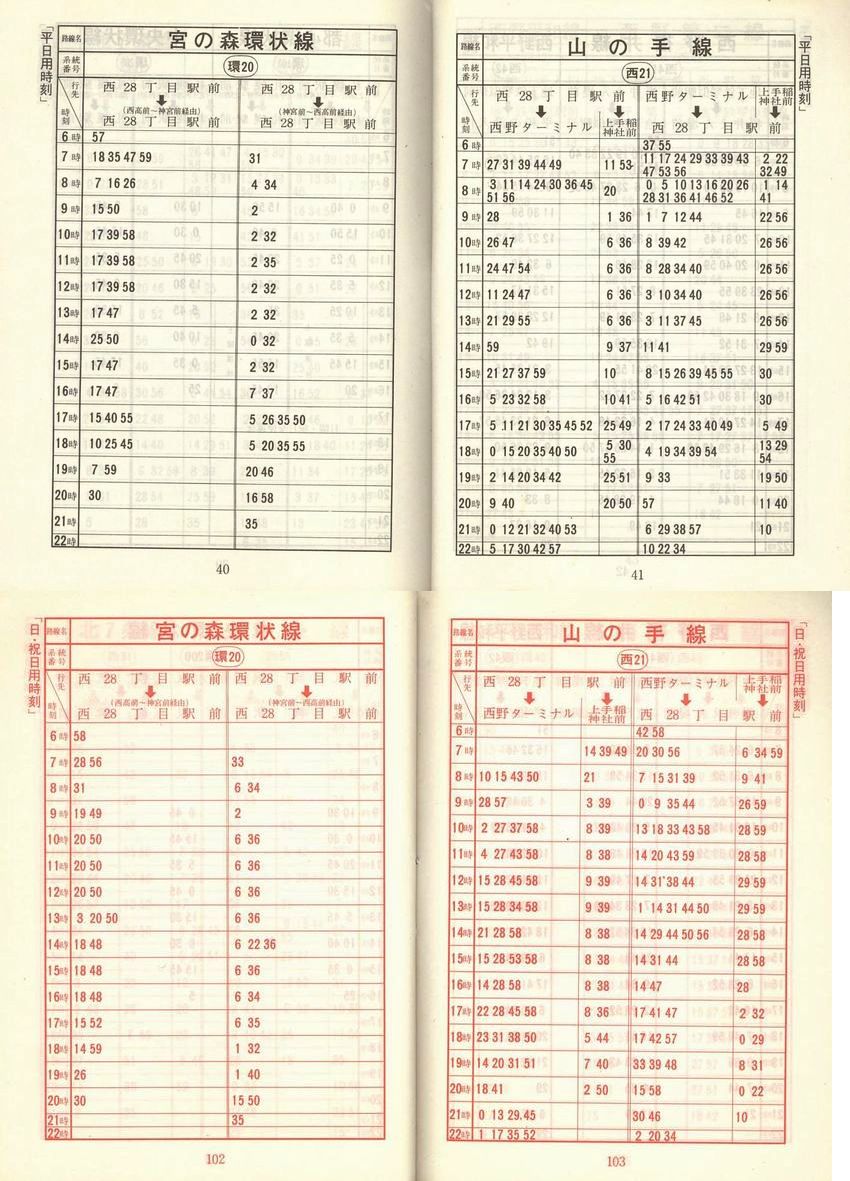 「平日用時刻」
路線名 宮の森環状線
系統番号 環20
行先 西28丁目駅前 西28丁目駅前
(西高前～神宮前経由) (神宮前～西高前経由)
時刻 西28丁目駅前 西28丁目駅前
6時 57
7時 18 35 47 59 31
8時 7 16 26 4 34
9時 15 50 2
10時 17 39 58 2 32
11時 17 39 58 2 35
12時 17 39 58 2 32
13時 17 47 2 32
14時 25 50 0 32
15時 17 47 2 32
16時 17 47 7 37
17時 15 40 55 5 26 35 50
18時 10 25 45 5 20 35 55
19時 7 59 20 46
20時 30 16 58
21時 35
22時
40
「平日用時刻」
路線名 山の手線
系統番号 西21
行先 西28丁目駅前 西野ターミナル 上手稲神社前
時刻 西野ターミナル 上手稲神社前 西28丁目駅前
6時 37 55
7時 27 31 39 44 49 11 53 11 17 24 29 33 39 43 2 22
47 53 56 32 49
8時 3 11 14 24 30 36 45 20 0 5 10 13 16 20 26 1 14
51 56 28 31 36 41 46 52 41
9時 28 1 36 1 7 12 44 22 56
10時 26 47 6 36 8 39 42 26 56
11時 24 47 54 6 36 8 28 34 40 26 56
12時 11 24 47 6 36 3 10 34 40 26 56
13時 21 29 55 6 36 3 11 37 45 26 56
14時 59 9 37 11 41 29 59
15時 21 27 37 59 10 8 15 26 39 45 55 30
16時 5 23 32 58 10 41 5 16 42 51 30
17時 5 11 21 30 35 45 52 25 49 2 17 24 33 40 49 5 49
18時 0 15 20 35 40 50 5 30 4 19 34 39 54 13 29
55 54
19時 2 14 20 34 42 25 51 9 33 19 50
20時 9 40 20 50 57 11 40
21時 0 12 21 32 40 53 6 29 38 57 10
22時 5 17 30 42 57 10 22 34
41
「日・祝日用時刻」
路線名 宮の森環状線
系統番号 環20
行先 西28丁目駅前 西28丁目駅前
(西高前～神宮前経由) (神宮前～西高前経由)
時刻 西28丁目駅前 西28丁目駅前
6時 58
7時 28 56 33
8時 31 6 34
9時 19 49 2
10時 20 50 6 36
11時 20 50 6 36
12時 20 50 6 36
13時 3 20 50 6 36
14時 18 48 6 22 36
15時 18 48 6 36
16時 18 48 6 34
17時 15 52 6 35
18時 14 59 1 32
19時 26 1 40
20時 30 15 50
21時 35
22時
102
「日・祝日用時刻」
路線名 山の手線
系統番号 西21
行先 西28丁目駅前 西野ターミナル 上手稲神社前
時刻 西野ターミナル 上手稲神社前 西28丁目駅前
6時 42 58
7時 14 39 49 20 30 56 6 34 59
8時 10 15 43 50 21 7 15 31 39 9 41
9時 28 57 3 39 0 9 35 44 26 59
10時 2 27 37 58 8 39 13 18 33 43 58 28 59
11時 4 27 43 58 8 38 14 20 43 59 28 58
12時 15 28 45 58 9 39 14 31 38 44 29 59
13時 15 28 34 58 9 39 1 14 31 44 50 29 59
14時 21 28 58 8 38 14 29 44 50 56 28 58
15時 15 28 53 58 8 38 14 31 44 28 58
16時 14 28 58 8 38 14 47 28
17時 22 28 45 58 8 36 17 41 47 2 32
18時 23 31 38 50 5 44 17 42 57 0 29
19時 14 20 31 51 7 40 33 39 48 8 31
20時 18 41 2 50 15 58 0 22
21時 0 13 29 45 30 46 10
22時 1 17 35 52 2 20 34
103